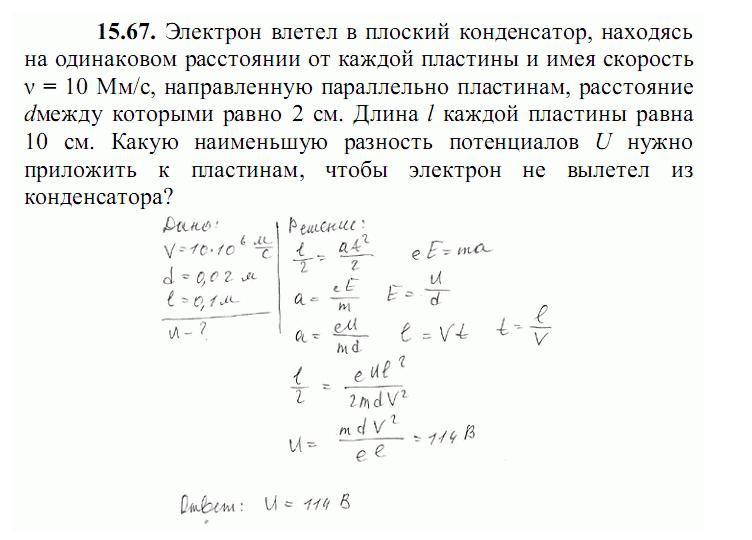 15.67. Электрон влетел в плоский конденсатор, находясь
на одинаковом расстоянии от каждой пластины и имея скорость
ν = 10 Мм/с, направленную параллельно пластинам, расстояние
dмежду которыми равно 2 см. Длина l каждой пластины равна
10 см. Какую наименьшую разность потенциалов U нужно
приложить к пластинам, чтобы электрон не вылетел из
конденсатора?
Дано: Решение:
V=10·10⁶ м/с l/2 = at²/2 eE=ma
d=0,02 м
l=0,1м a= eE/m E= U/d
U-? a= eU/md l=Vt t= l/V
l/2 = eUl²/2mdV²
U= mdV²/el =114 В
Ответ: U= 114 В